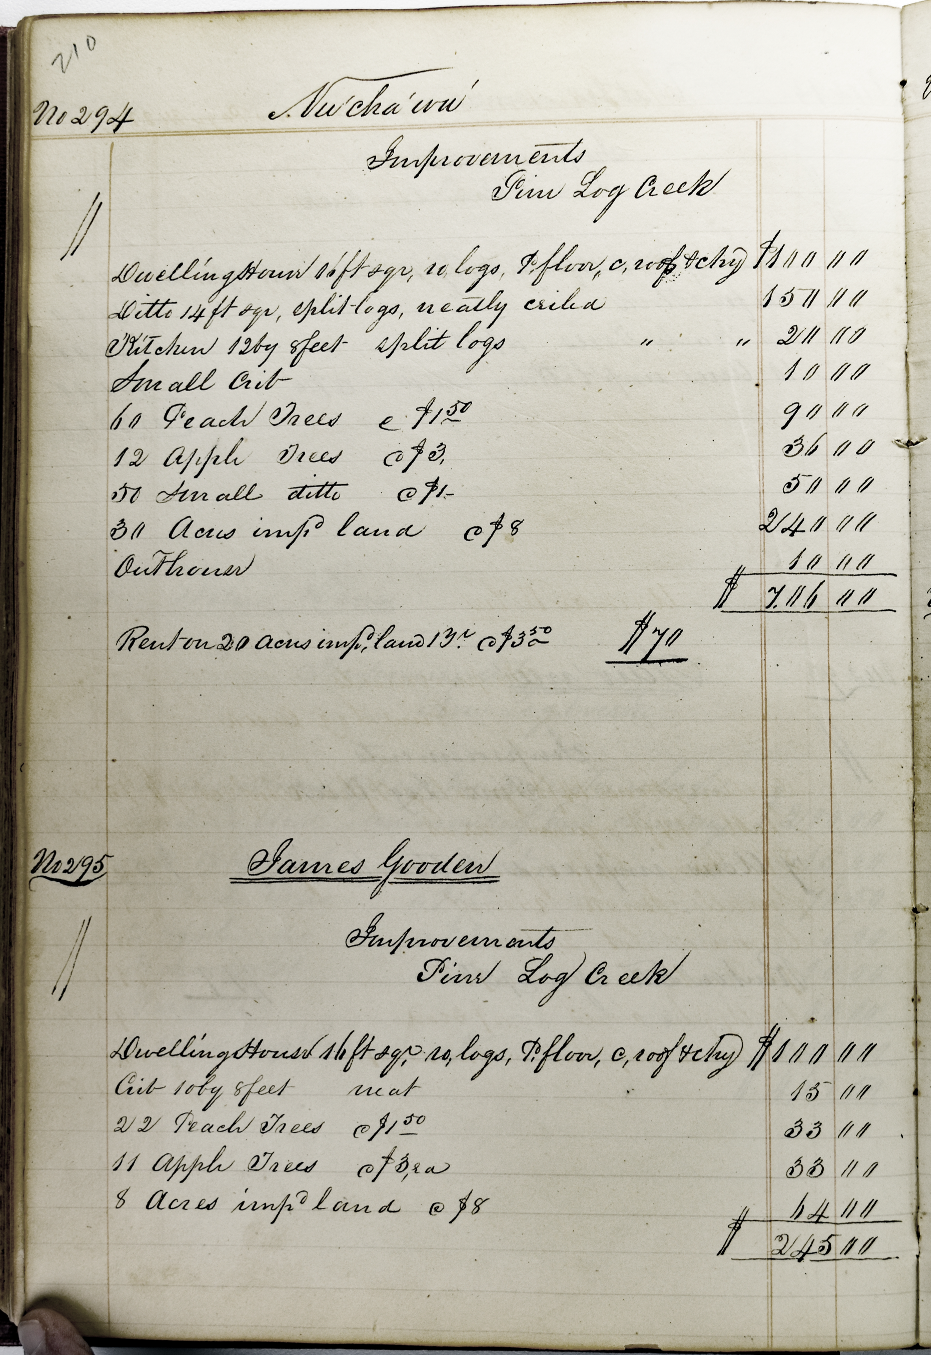 210
No 294 Nu'cha'wu'
Improvements
Pine Log Creek
Dwelling House 16 ft sqr, ro, logs, P. floor, c, roof & chy $100 00
Ditto 14 ft sqr, split logs, neatly 150 00
Kitchen 12 by 8 feet split logs " " 20 00
Small Crib 10 00
60 Peach Trees @ $1 50 90 00
12 Apple Trees @ $3. 36 00
50 Small ditto @ $1- 50 00
30 Acres imp'd land @ $8 240 00
Outhouse 10 00
$ 706 00
Rent on 20 acres imp'd, land 13. @ $3 50 $70
No 295 James Gooden
Improvements
Pine Log Creek
Dwelling House 16 ft sqr, ro, logs, P. floor, c, roof & chy $100 00
Crib 10 by 8 feet neat 15 00
22 Peach Trees @ $1 50 33 00
11 Apple Trees @ $3, ea 33 00
8 Acres imp'd land @ $8 64 00
$ 245 00